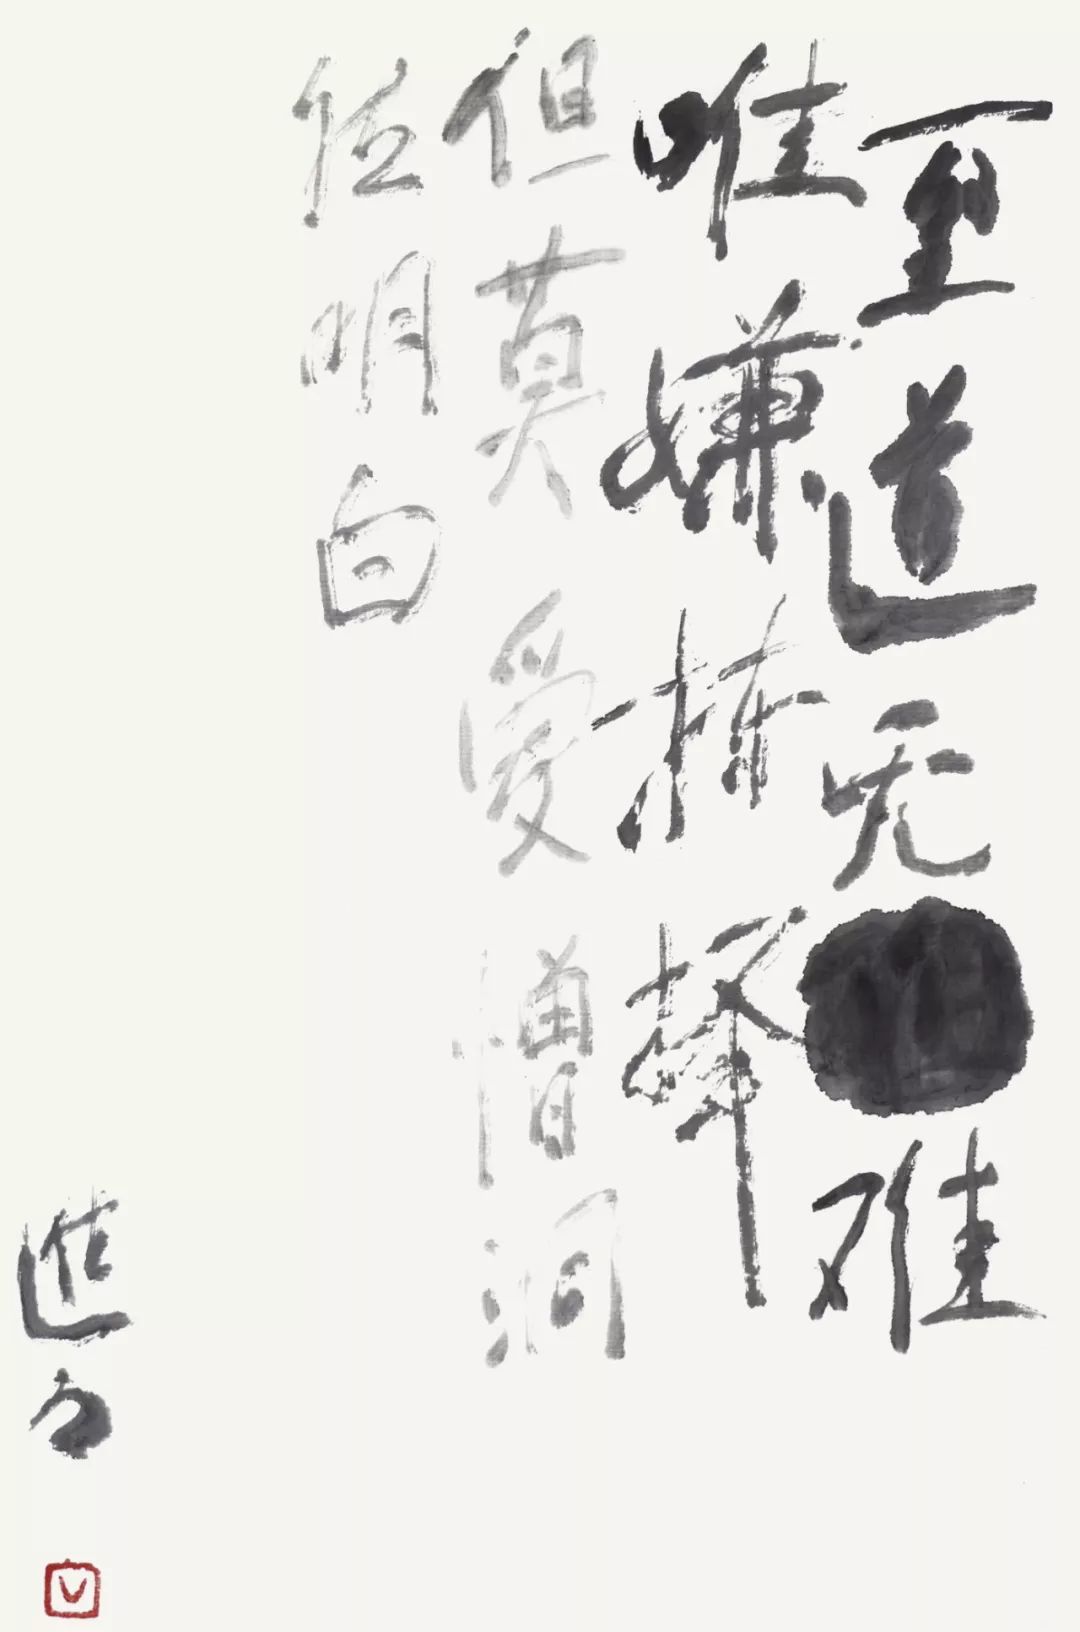 至道无难
唯嫌拣择
但莫爱憎洞
明白
進